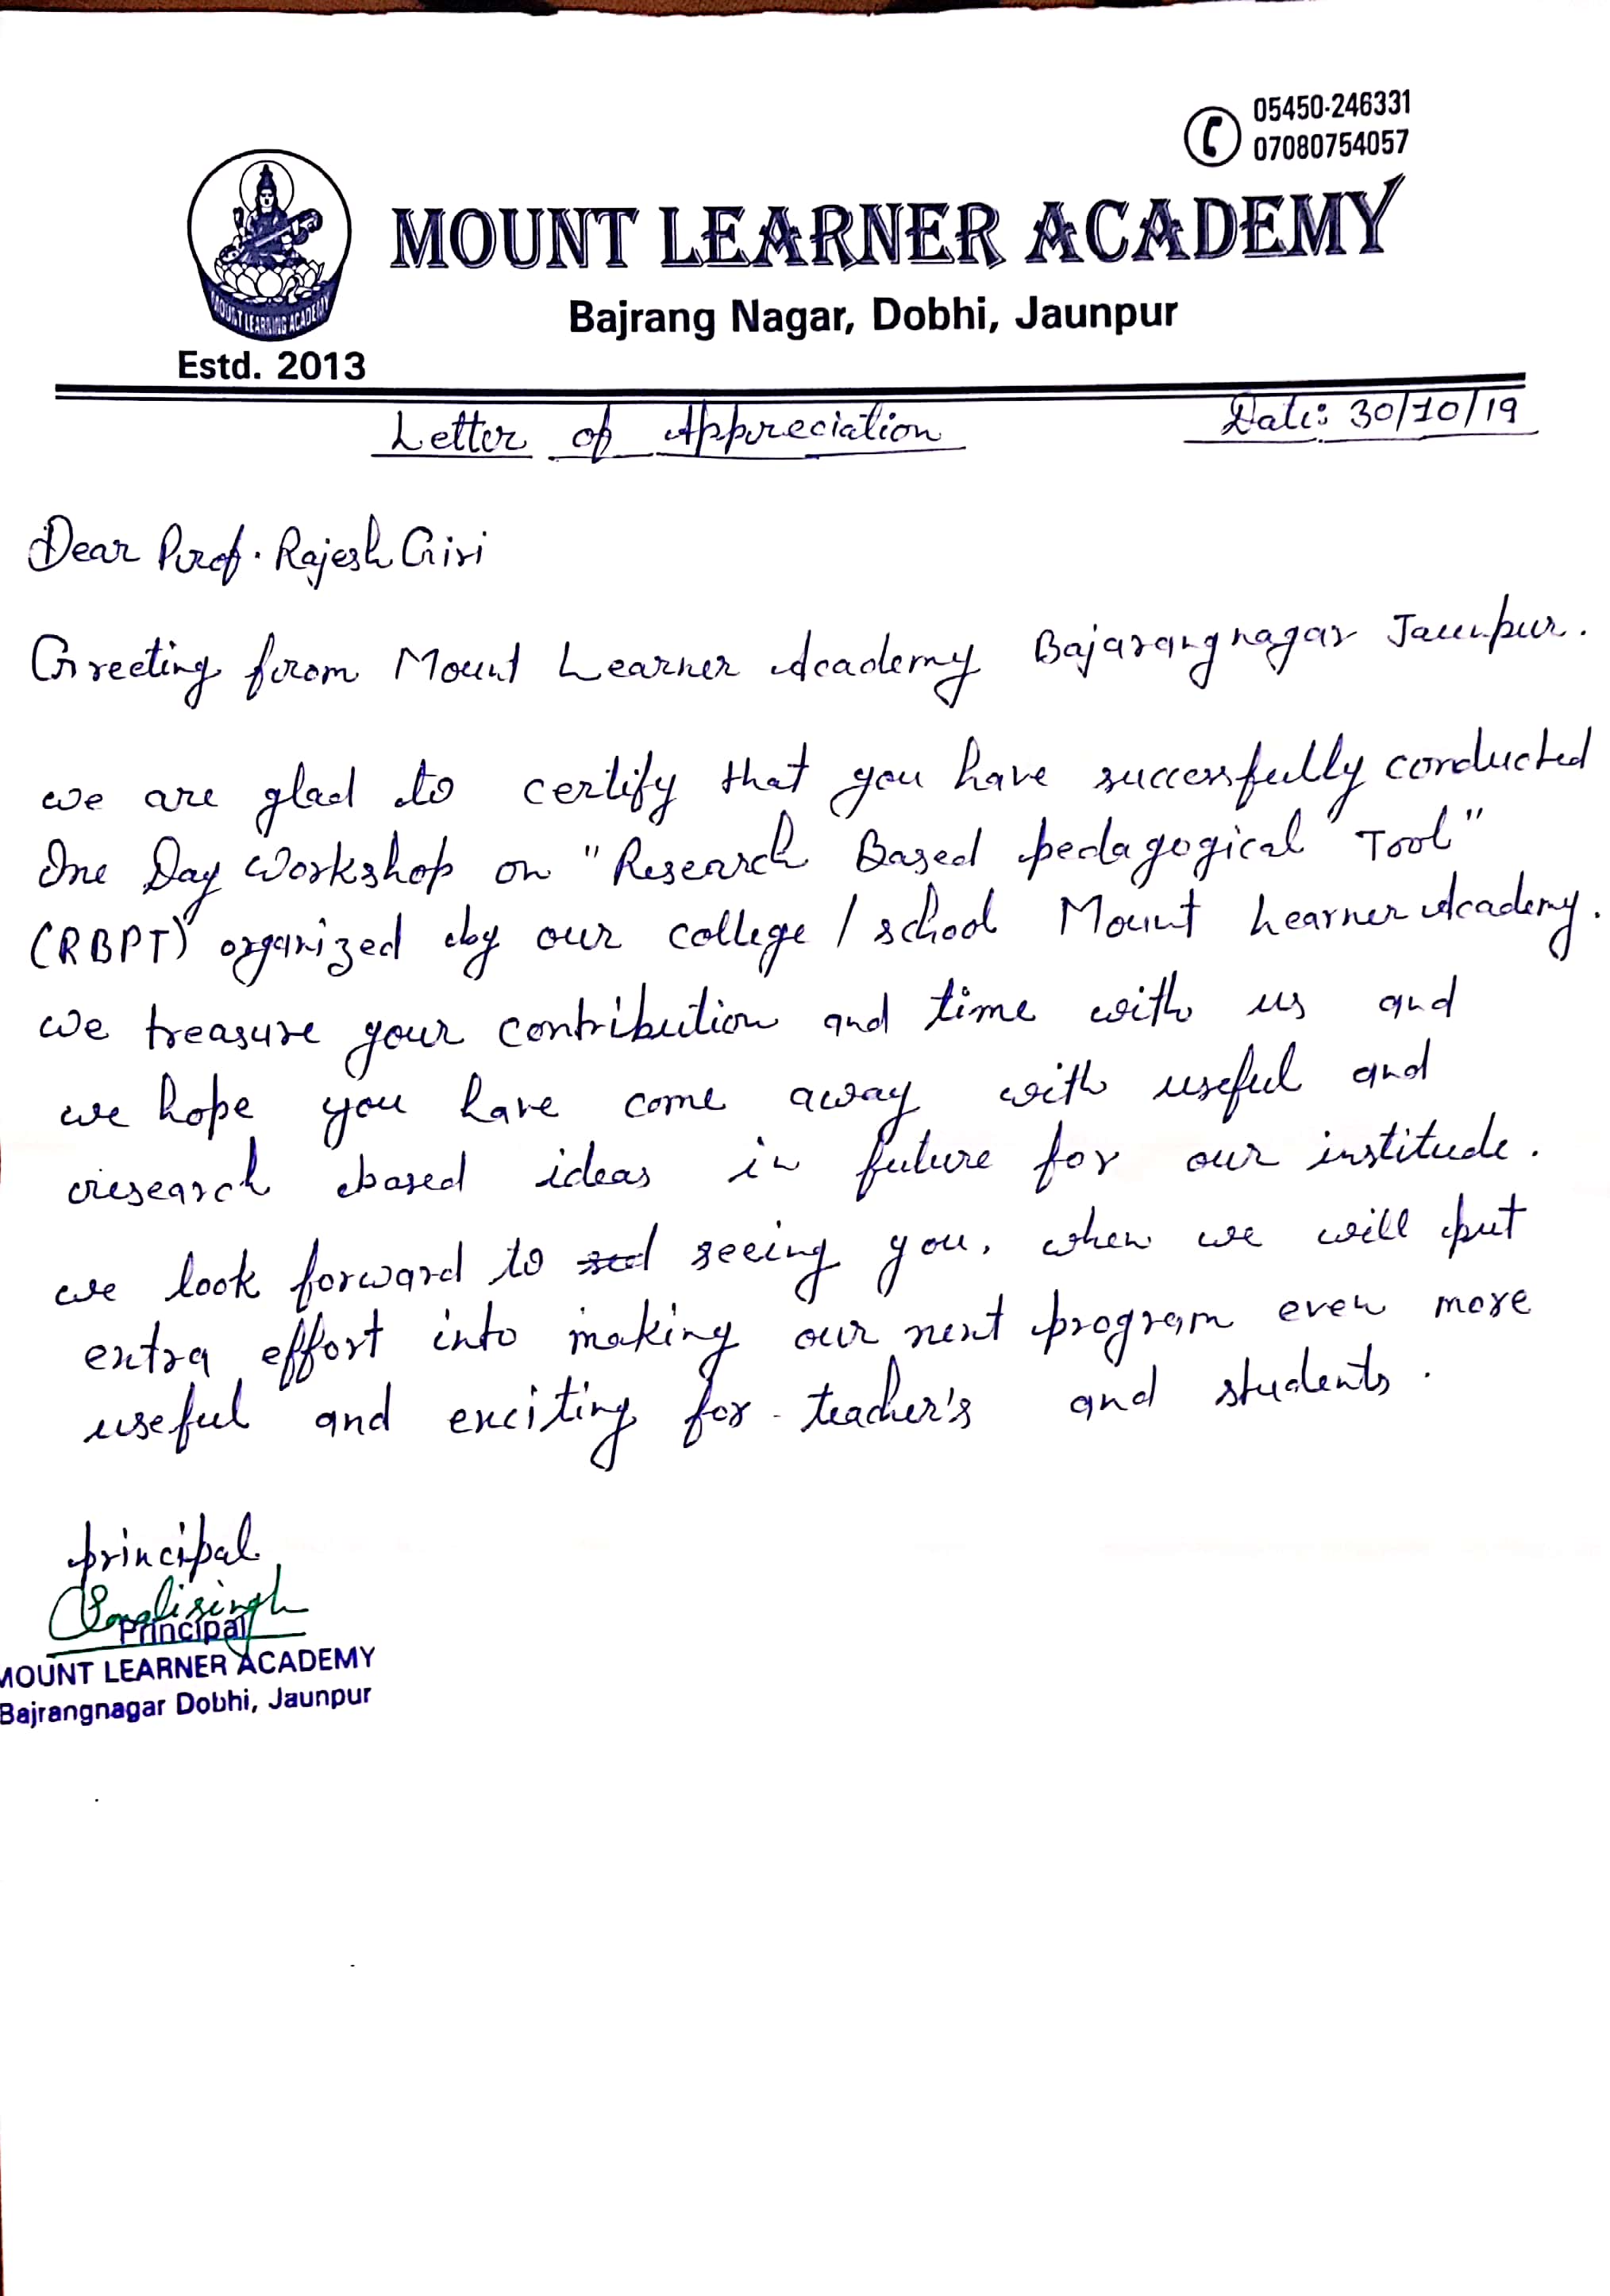 05450-246331
07080754057
MOUNT LEARNER ACADEMY
MOUNT LEARNING ACADEMY
Bajrang Nagar, Dobhi, Jaunpur
Estd. 2013
Letter of Appreciation
Date: 30/10/19
Dear Prof. Rajesh Giri
Greeting from Mount Learner Academy Bajarangnagar Jaunpur.
we are glad to certify that you have successfully conducted
One Day Workshop on "Research Based pedagogical Tool"
(RBPT) organized by our college / school Mount Learner Academy.
we treasure your contribution and time with us and
we hope you have come away with useful and
research based ideas in future for our institude.
we look forward to seeing you. when we will put
extra effort into making our next program even more
useful and exciting for teacher's and students.
principal
Principal
MOUNT LEARNER ACADEMY
Bajrangnagar Dobhi, Jaunpur